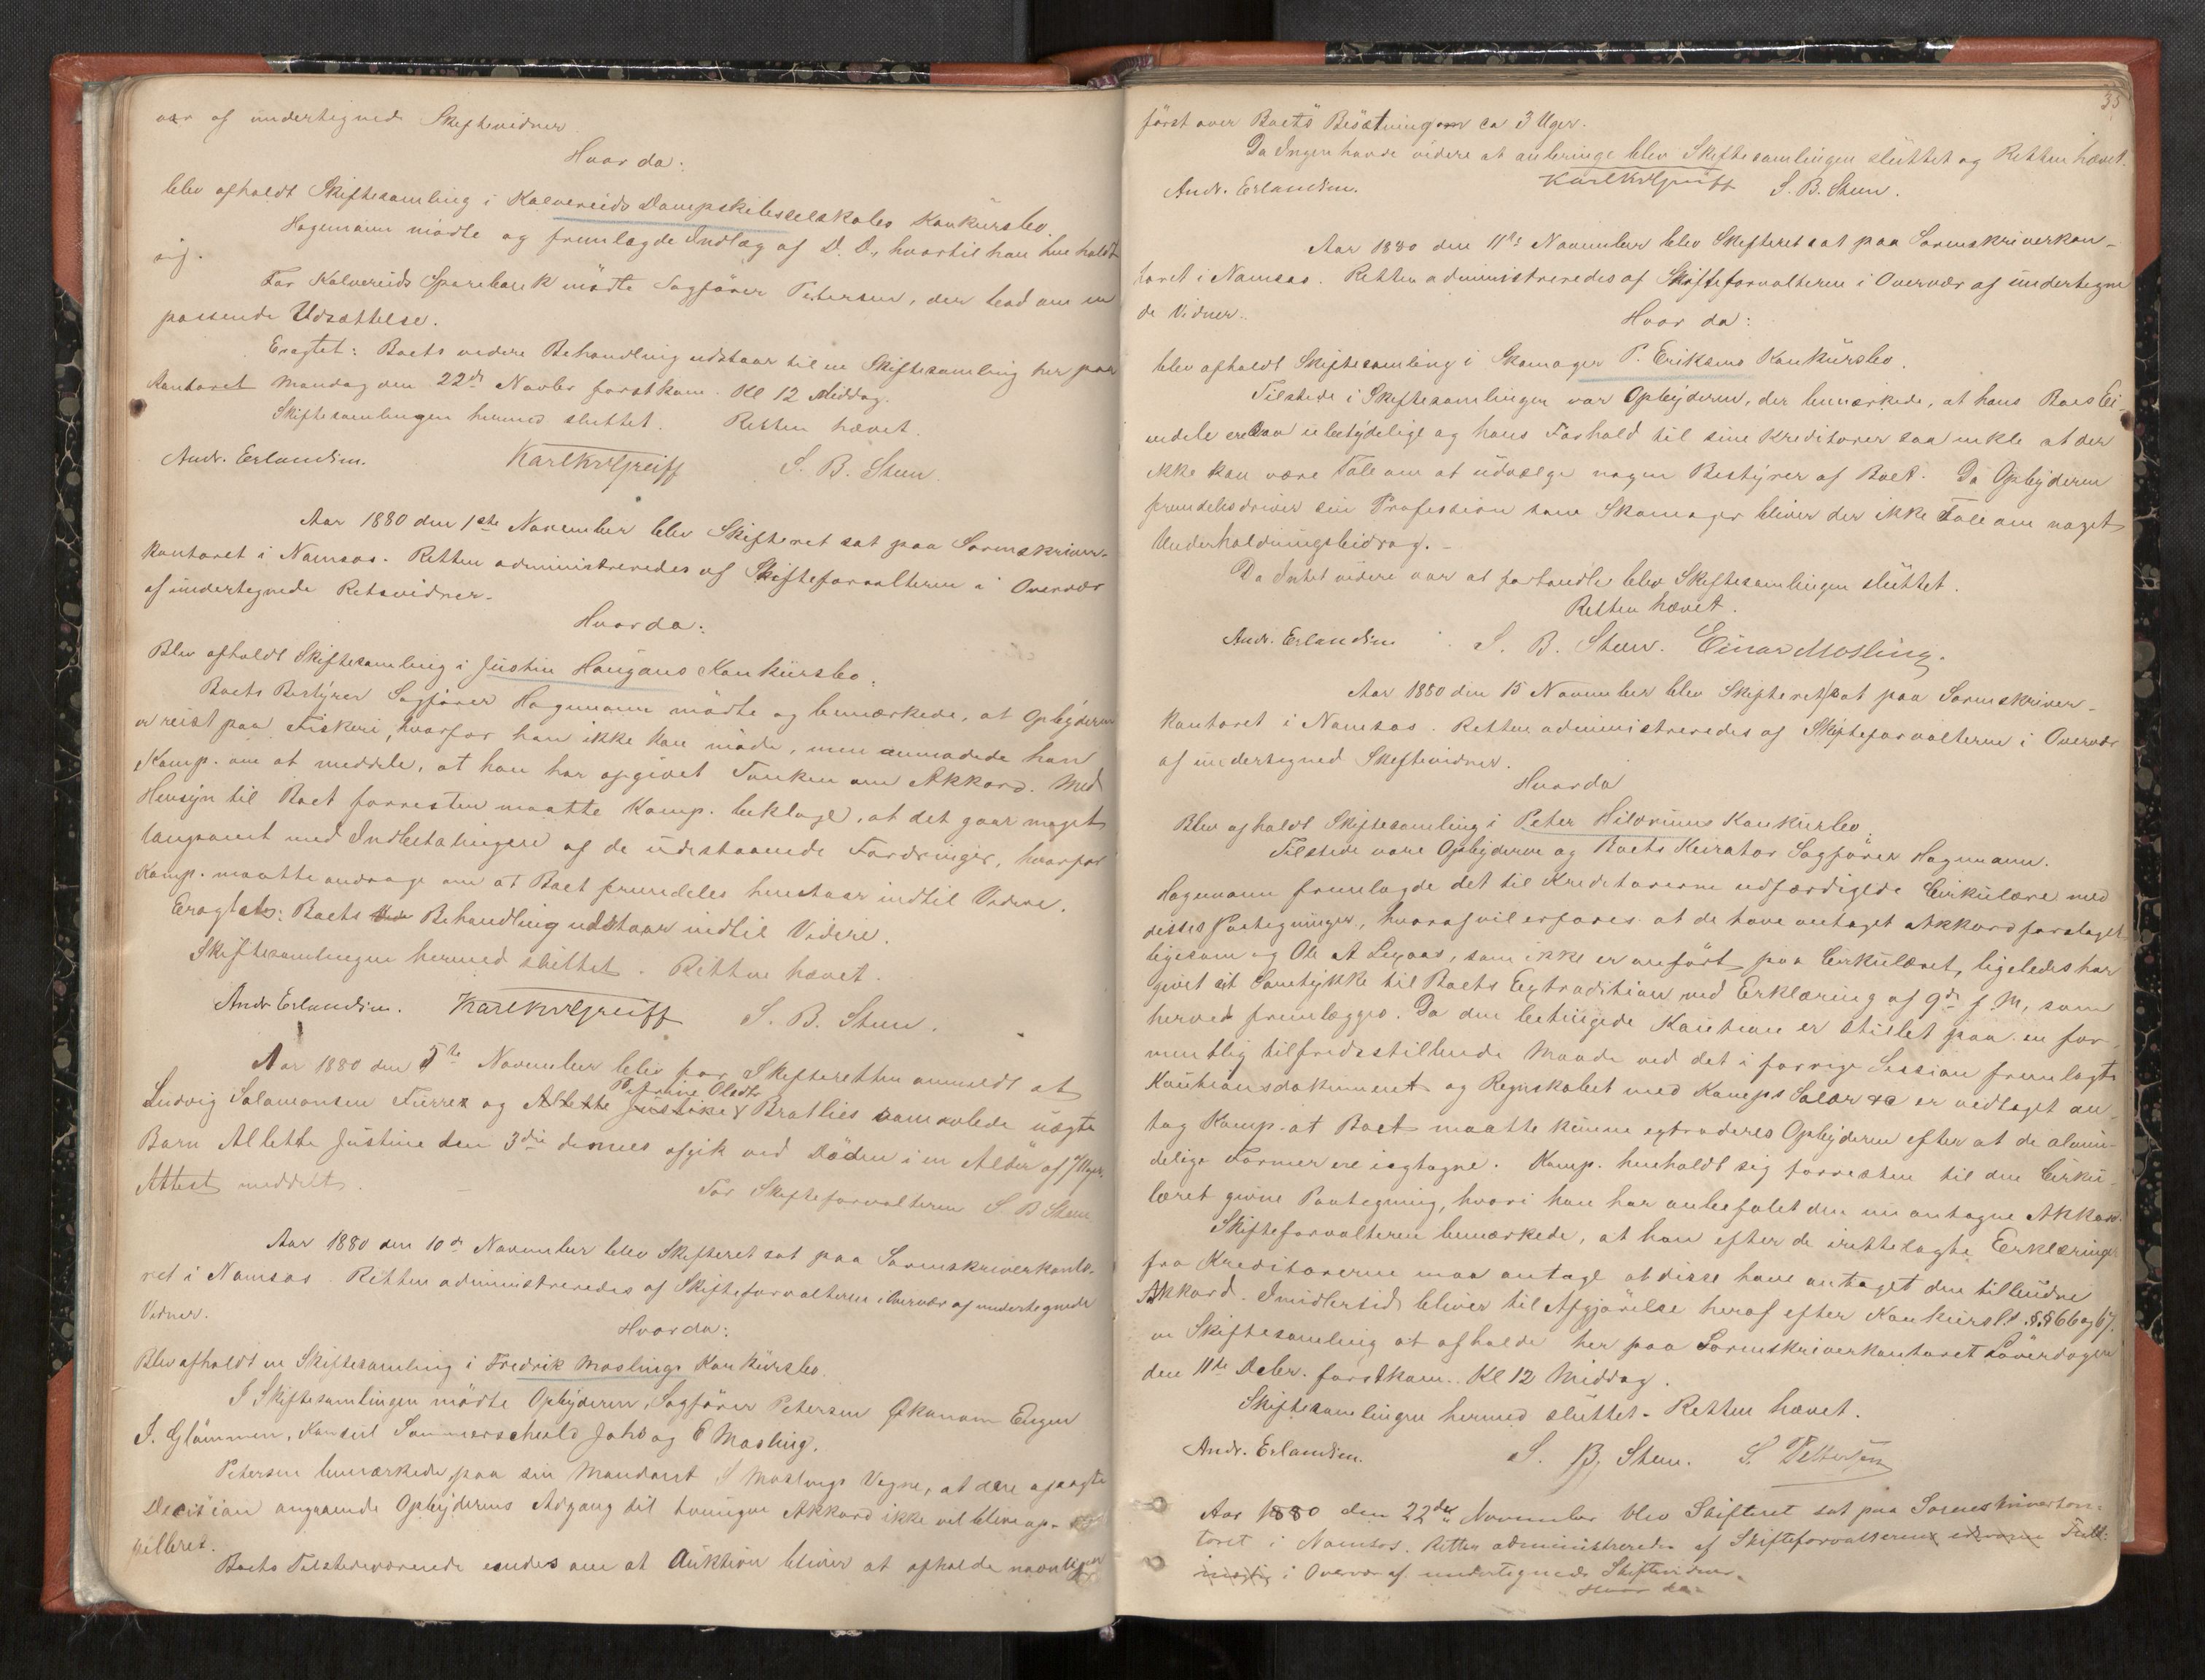 vær af undertegnede Skiftevidner
Hvor da:
blev afholdt Skiftesamling i Kolvereids Dampskibsselskabs Konkursbo.
Hagemann mödte og fremlagde Indlæg af D. D., hvortil han henholdt
sig.
For Kolvereids Sparebank mödte Sagförer Petersen, der bad om en
passende Udsættelse.
Eragtet: Boets videre Behandling udstaar til en Skiftesamling her paa
Kontoret Mandag den 22de Novbr förstkom. Kl 12 Middag.
Skiftesamlingen hermed sluttet. Retten hævet.
Andr. Erlandsen. S. B. Steen.
Aar 1880 den 1ste November blev Skifteret sat paa Sorenskriver-
kontoret i Namsos. Retten administreredes af Skifteforvalteren i Overvær
af undertegnede Retsvidner.
Hvor da:
Blev afholdt Skiftesamling i Justin Haugans Konkursbo.
Boets Bestyrer Sagförer Hagemann mödte og bemærkede, at Opbyderen
er reist paa Fiskeri, hvorfor han ikke kan möde, men anmodede han
Komp. om at meddele, at han har opgivet Tanken om Akkord. Med
Hensyn til Boet forresten maatte Komp. beklage, at det gaar meget
langsomt med Indbetalingen af de udestaaende Fordringer, hvorfor
Komp. maatte andrage om at Boet fremdeles henstaar indtil Videre.
Eragtet: Boets Behandling udstaar indtil Videre.
Skiftesamlingen hermed sluttet. Retten hævet.
Andr. Erlandsen. S. B. Steen.
Aar 1880 den 5te November blev for Skifteretten anmeldt at
Petrine Olsdtr
Ludvig Salamonsen Furrez og Allette Justine Bratlies samavlede uægte
Barn Allette Justine den 3die dennes afgik ved Döden i en Alder af 7 Uger.
Attest meddelt. For Skifteforvalteren S B Steen
Aar 1880 den 10de November blev Skifteret sat paa Sorenskriverkonto-
ret i Namsos. Retten administreredes af Skifteforvalteren i Overvær af undertegnede
Vidner.
Hvor da:
Blev afholdt en Skiftesamling i Fredrik Moslings Konkursbo.
I Skiftesamlingen mödte Opbyderen, Sagförer Petersen Økonom Eugen
J. Glömmen, Konsul Sommerschield Jahs og E Mosling.
Petersen bemærkede paa sin Mandant S Moslings Vegne, at den afsagte
Decision angaaende Opbyderens Adgang til tvungen Akkord ikke vil blive ap-
pelleret.
Boets Tilstedeværende enedes om at Auktion bliver at afholde navnligen
35
först over Boets Besætning om ca 3 Uger.
Da Ingen havde videre at anbringe blev Skiftesamlingen sluttet og Retten hævet.
Andr. Erlandsen. S. B. Steen.
Aar 1880 den 11te November blev Skifteret sat paa Sorenskriverkon-
toret i Namsos. Retten administreredes af Skifteforvalteren i Overvær af undertegne
de Vidner.
Hvor da:
blev afholdt Skiftesamling i Skomager P. Eriksens Konkursbo.
Tilstede i Skiftesamlingen var Opbyderen, der bemærkede, at hans Boes Ei-
endele ere saa ubetydelige og hans Forhold til sine Kreditorer saa enkle at der
ikke kan være Tale om at udvælge nogen Bestyrer af Boet. Da Opbyderen
fremdeles driver sin Profession som Skomager bliver der ikke Tale om noget
Underholdningsbidrag.
Da Intet videre var at forhandle blev Skiftesamlingen sluttet.
Retten hævet.
Andr. Erlandsen S. B. Steen. Einar Mosling.
Aar 1880 den 15 November blev Skifteret sat paa Sorenskriver-
kontoret i Namsos. Retten administreredes af Skifteforvalteren i Overvær
af undertegned Skiftevidner.
Hvorda
Blev afholdt Skiftesamling i Peter Hildrums Konkursbo.
Tilstede vare Opbyderen og Boets Kurator Sagförer Hagemann.
Hagemann fremlagde det til Kreditorerne udfærdigede Cirkulære med
disses Paategninger, hvoraf vil erfares at de have antaget Akkordforslaget
ligesom og Ole A Legaas, som ikke er anfört paa Cirkulæret, ligeledes har
givet sit Samtykke til Boets Extradition ved Erklæring af 9de f. M, som
herved fremlægges. Da den betingede Kaution er stillet paa en for-
mentlig tilfredsstillende Maade ved det i forrige Session fremlagte
Kautionsdokument og Regnskabet med Komps Salær &c er vedtaget an-
tog Komp. at Boet maatte kunne extraderes Opbyderen efter at de almin-
delige Former ere iagtagne. Komp. henholdt sig forresten til den Cirku-
læret givne Paategning, hvori han har anbefalet den nu antagne Akkord.
Skifteforvalteren bemærkede, at han efter de irettelagte Erklæringer
fra Kreditorerne maa antage at disse have antaget den tilbudne
Akkord. Imidlertid bliver til Afgjörelse heraf efter Konkursl. §§ 66 og 67.
en Skiftesamling at afholde her paa Sorenskriverkontoret Löverdagen
den 11te Debr. förstkom. Kl 12 Middag.
Skiftesamlingen hermed sluttet. Retten hævet.
Andr. Erlandsen. S. B. Steen. S. Pettersen
Aar 1880 den 22de November blev Skifteret sat paa Sorenskriverkon-
toret i Namsos. Retten administreredes af Skifteforvalteren
i Overvær af undertegnede Skiftevidner.
Hvor da